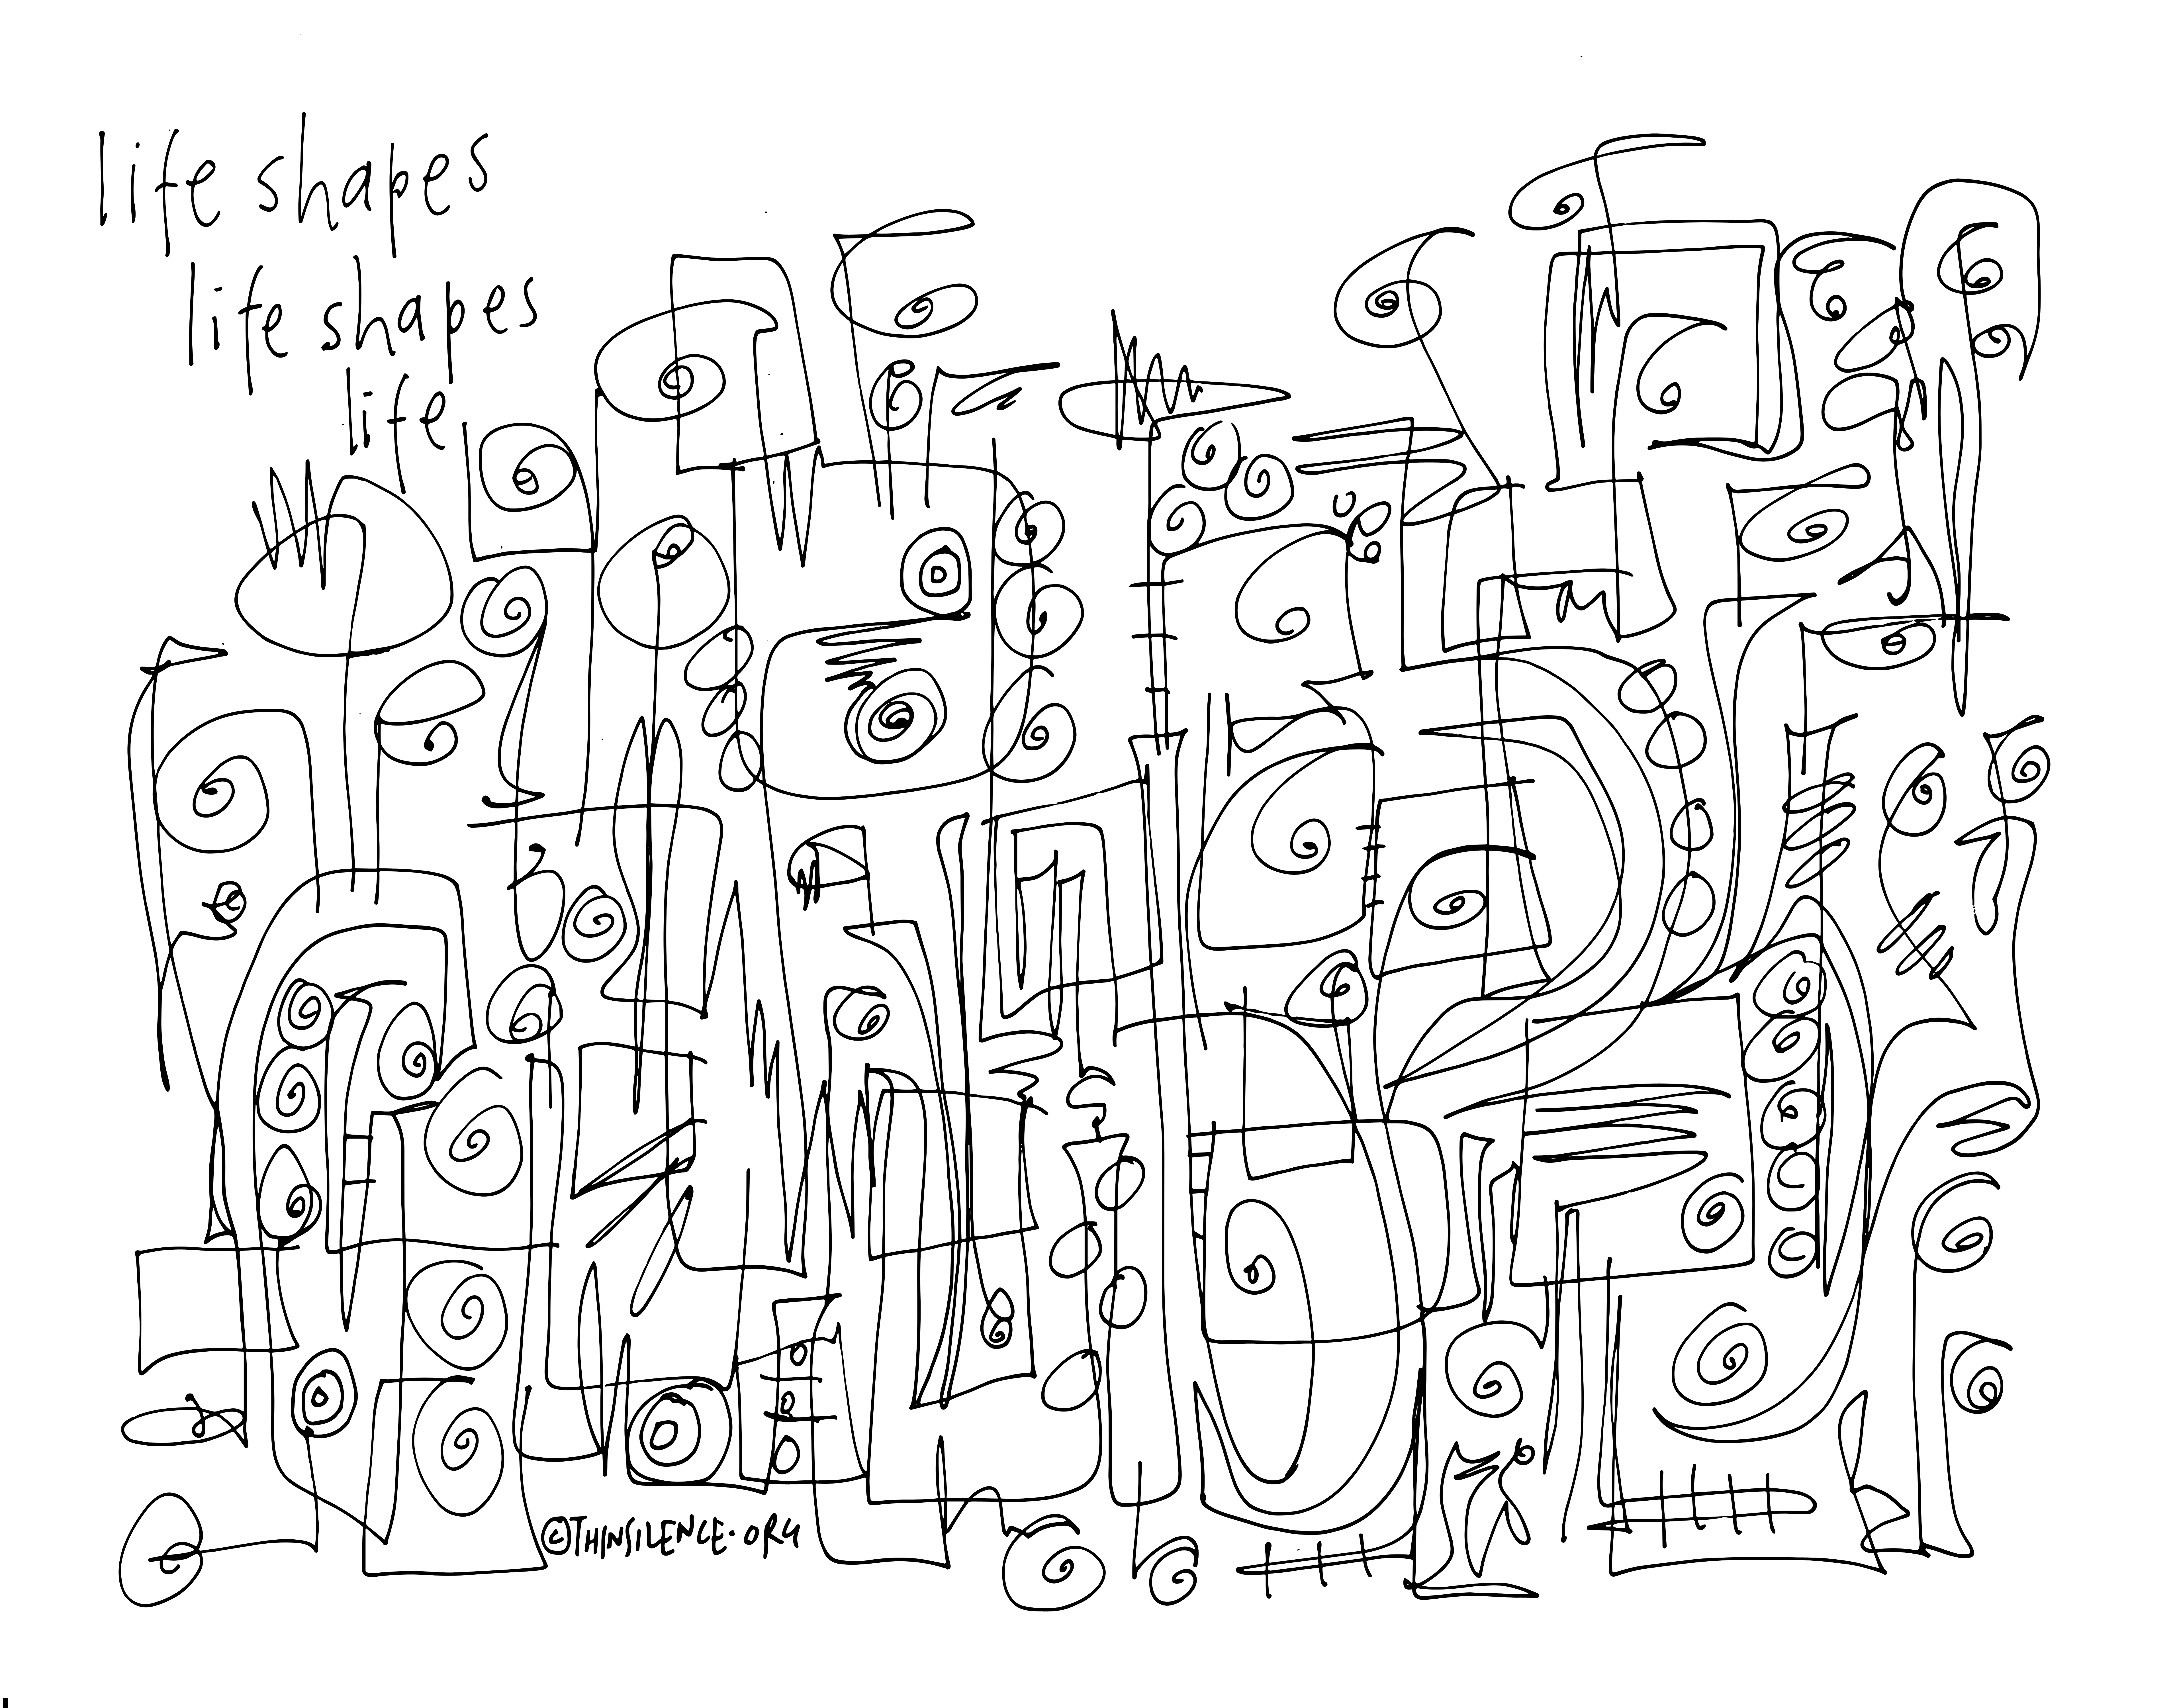 life shapes
life shapes
life
©THINSILENCE.ORG